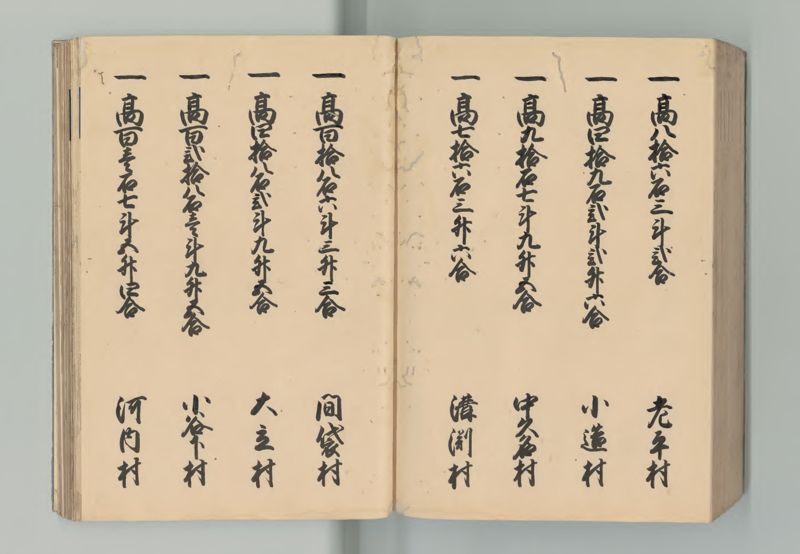 一 高八拾六石三斗弐合 老平村
一 高四拾九石弐斗弐升六合 小造村
一 高九拾石七斗九升五合 中久名村
一 高七拾六石三升六合 渕村
一 高百拾八石六斗三升三合 間袋村
一 高四拾八石弐斗九升五合 大立村
一 高百弐拾八石壱斗九升五合 小谷下村
一 高百壱石七斗五升四合 河内村